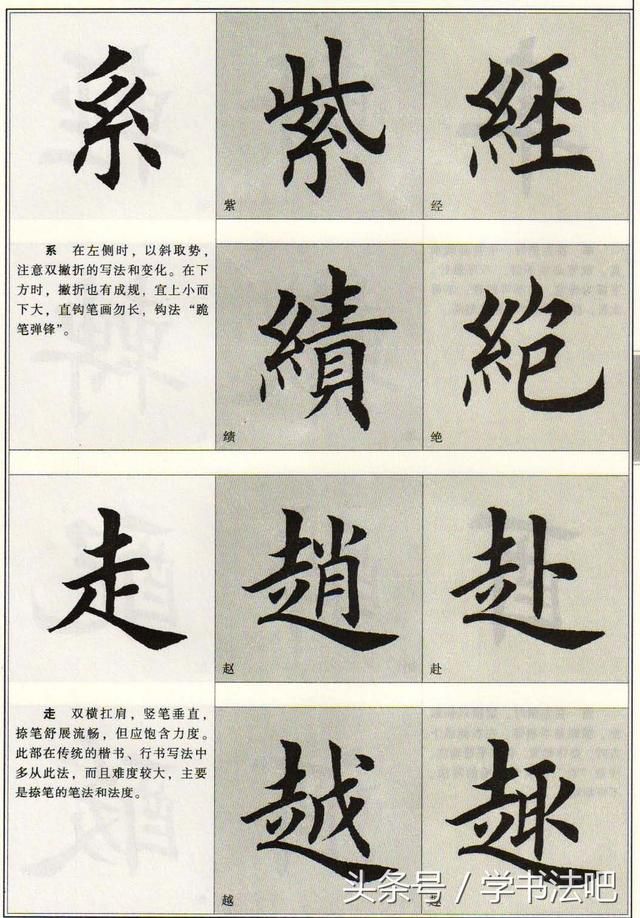 系 紫 經
紫 经
系 在左侧时，以斜取势，
注意双撇折的写法和变化。在下
方时，撇折也有成规，宜上小而
下大，直钩笔画勿长，钩法“跪
笔弹锋”。
績 絕
绩 绝
走 趙 赴
赵 赴
走 双横扛肩，竖笔垂直，
捺笔舒展流畅，但应饱含力度。
此部在传统的楷书、行书写法中
多从此法，而且难度较大，主要
是捺笔的笔法和法度。
越 趣
越
头条号／学书法吧